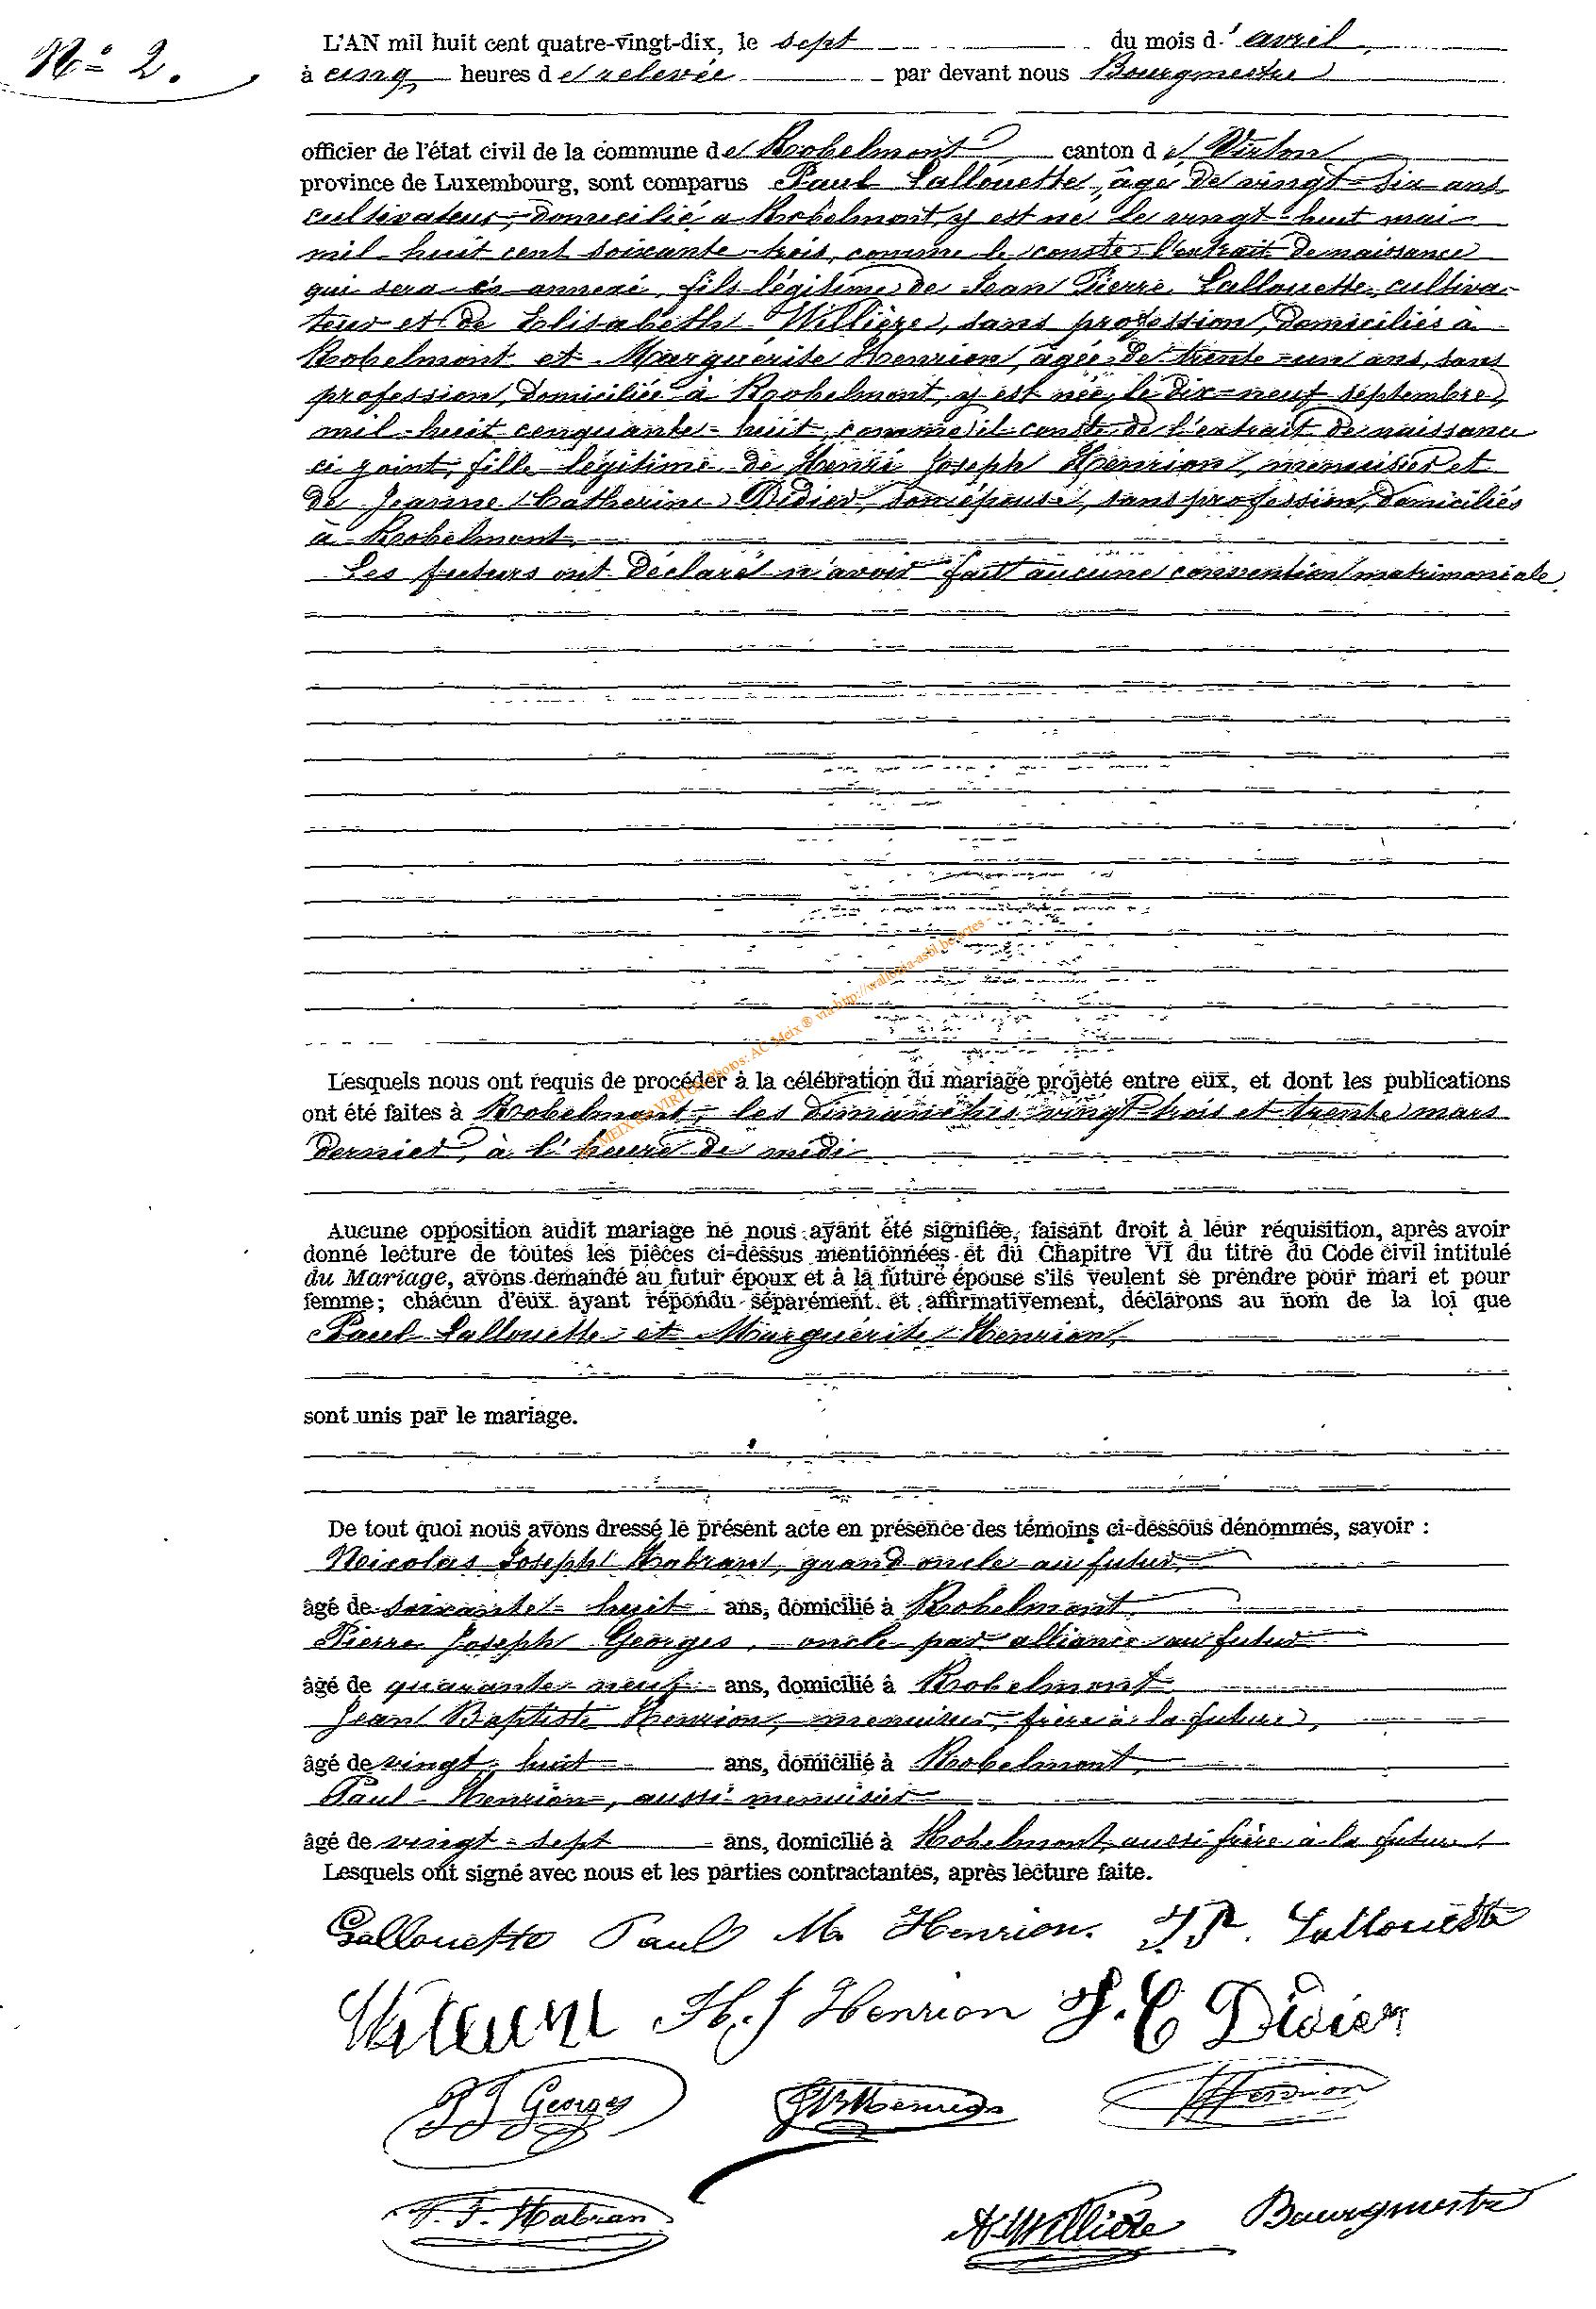 N° 2.
L'AN mil huit cent quatre-vingt-dix, le sept du mois d' avril
à cinq heures de relevée par devant nous Bourgmestre
officier de l'état civil de la commune de Robelmont canton de Virton
province de Luxembourg, sont comparus Paul Lallouette, âgé de vingt-six ans
cultivateur, domicilié à Robelmont, y est né le vingt-huit mai
mil huit cent soixante-trois, comme le conste l'extrait de naissance
qui sera ci annexé, fils légitime de Jean Pierre Lallouette, cultiva-
teur et de Elisabeth Willière, sans profession, domiciliés à
Robelmont et Marguérite Henrion, âgée de trente-un ans, sans
profession, domiciliée à Robelmont, y est née, le dix-neuf septembre,
mil-huit cenquante-huit, comme il conste de l'extrait de naissance
ci joint, fille légitime de Henri Joseph Henrion, menuisier et
de Jeanne Catherine Didier, son épouse, sans profession, domiciliés
à Robelmont.
Les futurs ont déclaré n'avoir fait aucune convention matrimoniale
Lesquels nous ont requis de procéder à la célébration du mariage projeté entre eux, et dont les publications
ont été faites à Robelmont, les dimanches vingt-trois et trente mars
dernier, à l'heure de midi
Aucune opposition audit mariage ne nous ayant été signifiée, faisant droit à leur réquisition, après avoir
donné lecture de toutes les pièces ci-dessus mentionnées et du Chapitre VI du titre du Code civil intitulé
du Mariage, avons demandé au futur époux et à la future épouse s'ils veulent se prendre pour mari et pour
femme; chacun d'eux ayant répondu séparément et affirmativement, déclarons au nom de la loi que
Paul Lallouette et Marguérite Henrion,
sont unis par le mariage.
De tout quoi nous avons dressé le présent acte en présence des témoins ci-dessous dénommés, savoir :
Nicolas Joseph Habran, grand oncle au futur,
âgé de soixante-huit ans, domicilié à Robelmont
Pierre Joseph Georges, oncle par alliance au futur
âgé de quarante neuf ans, domicilié à Robelmont
Jean Baptiste Henrion, menuisier, frère à la future,
âgé de vingt-huit ans, domicilié à Robelmont,
Paul Henrion, aussi menuisier
âgé de vingt-sept ans, domicilié à Robelmont, aussi frère à la future
Lesquels ont signé avec nous et les parties contractantes, après lecture faite.
Lallouette Paul M. Henrion. J. P. Lallouette
H. J Henrion J. C Didier
P J Georges JB Henrion Henrion
N. J. Habran A. Willière Bourgmestre